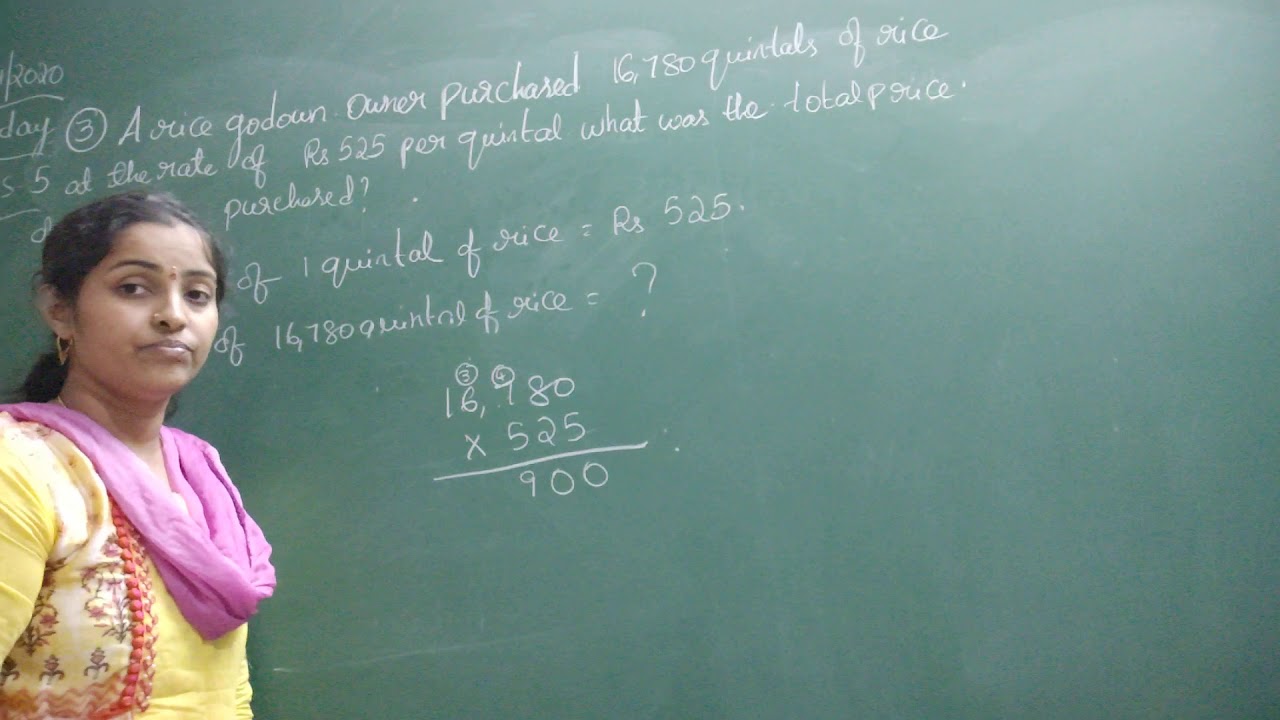 /2020
day ③ A rice godown owner purchased 16,780 quintals of rice
s-5 at the rate of Rs 525 per quintal what was the total price.
purchased?
of 1 quintal of rice = Rs 525.
of 16,780 quintal of rice = ?
③ ④
16,780
x 525
900